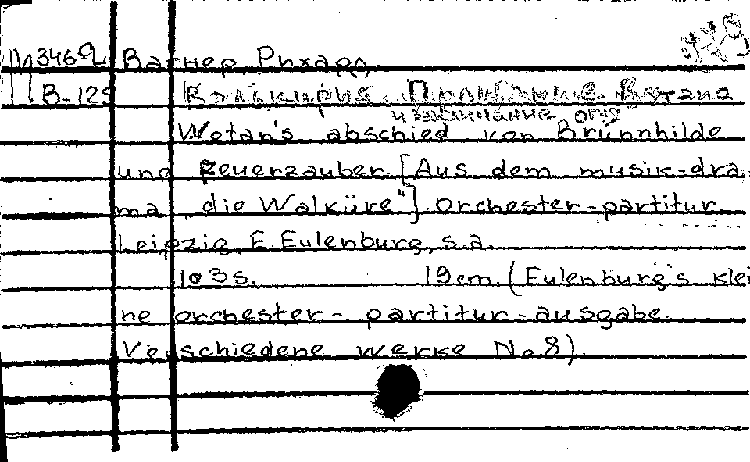 М3462 Вагнер, Рихард
В-125 Валькирия. Прощание Вотана
и заклинание огня
Wotan's abschied von Brünnhilde
und Feuerzauber. [Aus dem musik-dra-
ma „die Walküre"] Orchester-partitur.
Leipzig, E. Eulenburg, s.a.
103s. 19cm. (Eulenburg's klei
ne orchester- partitur-ausgabe.
Verschiedene werke No 8)